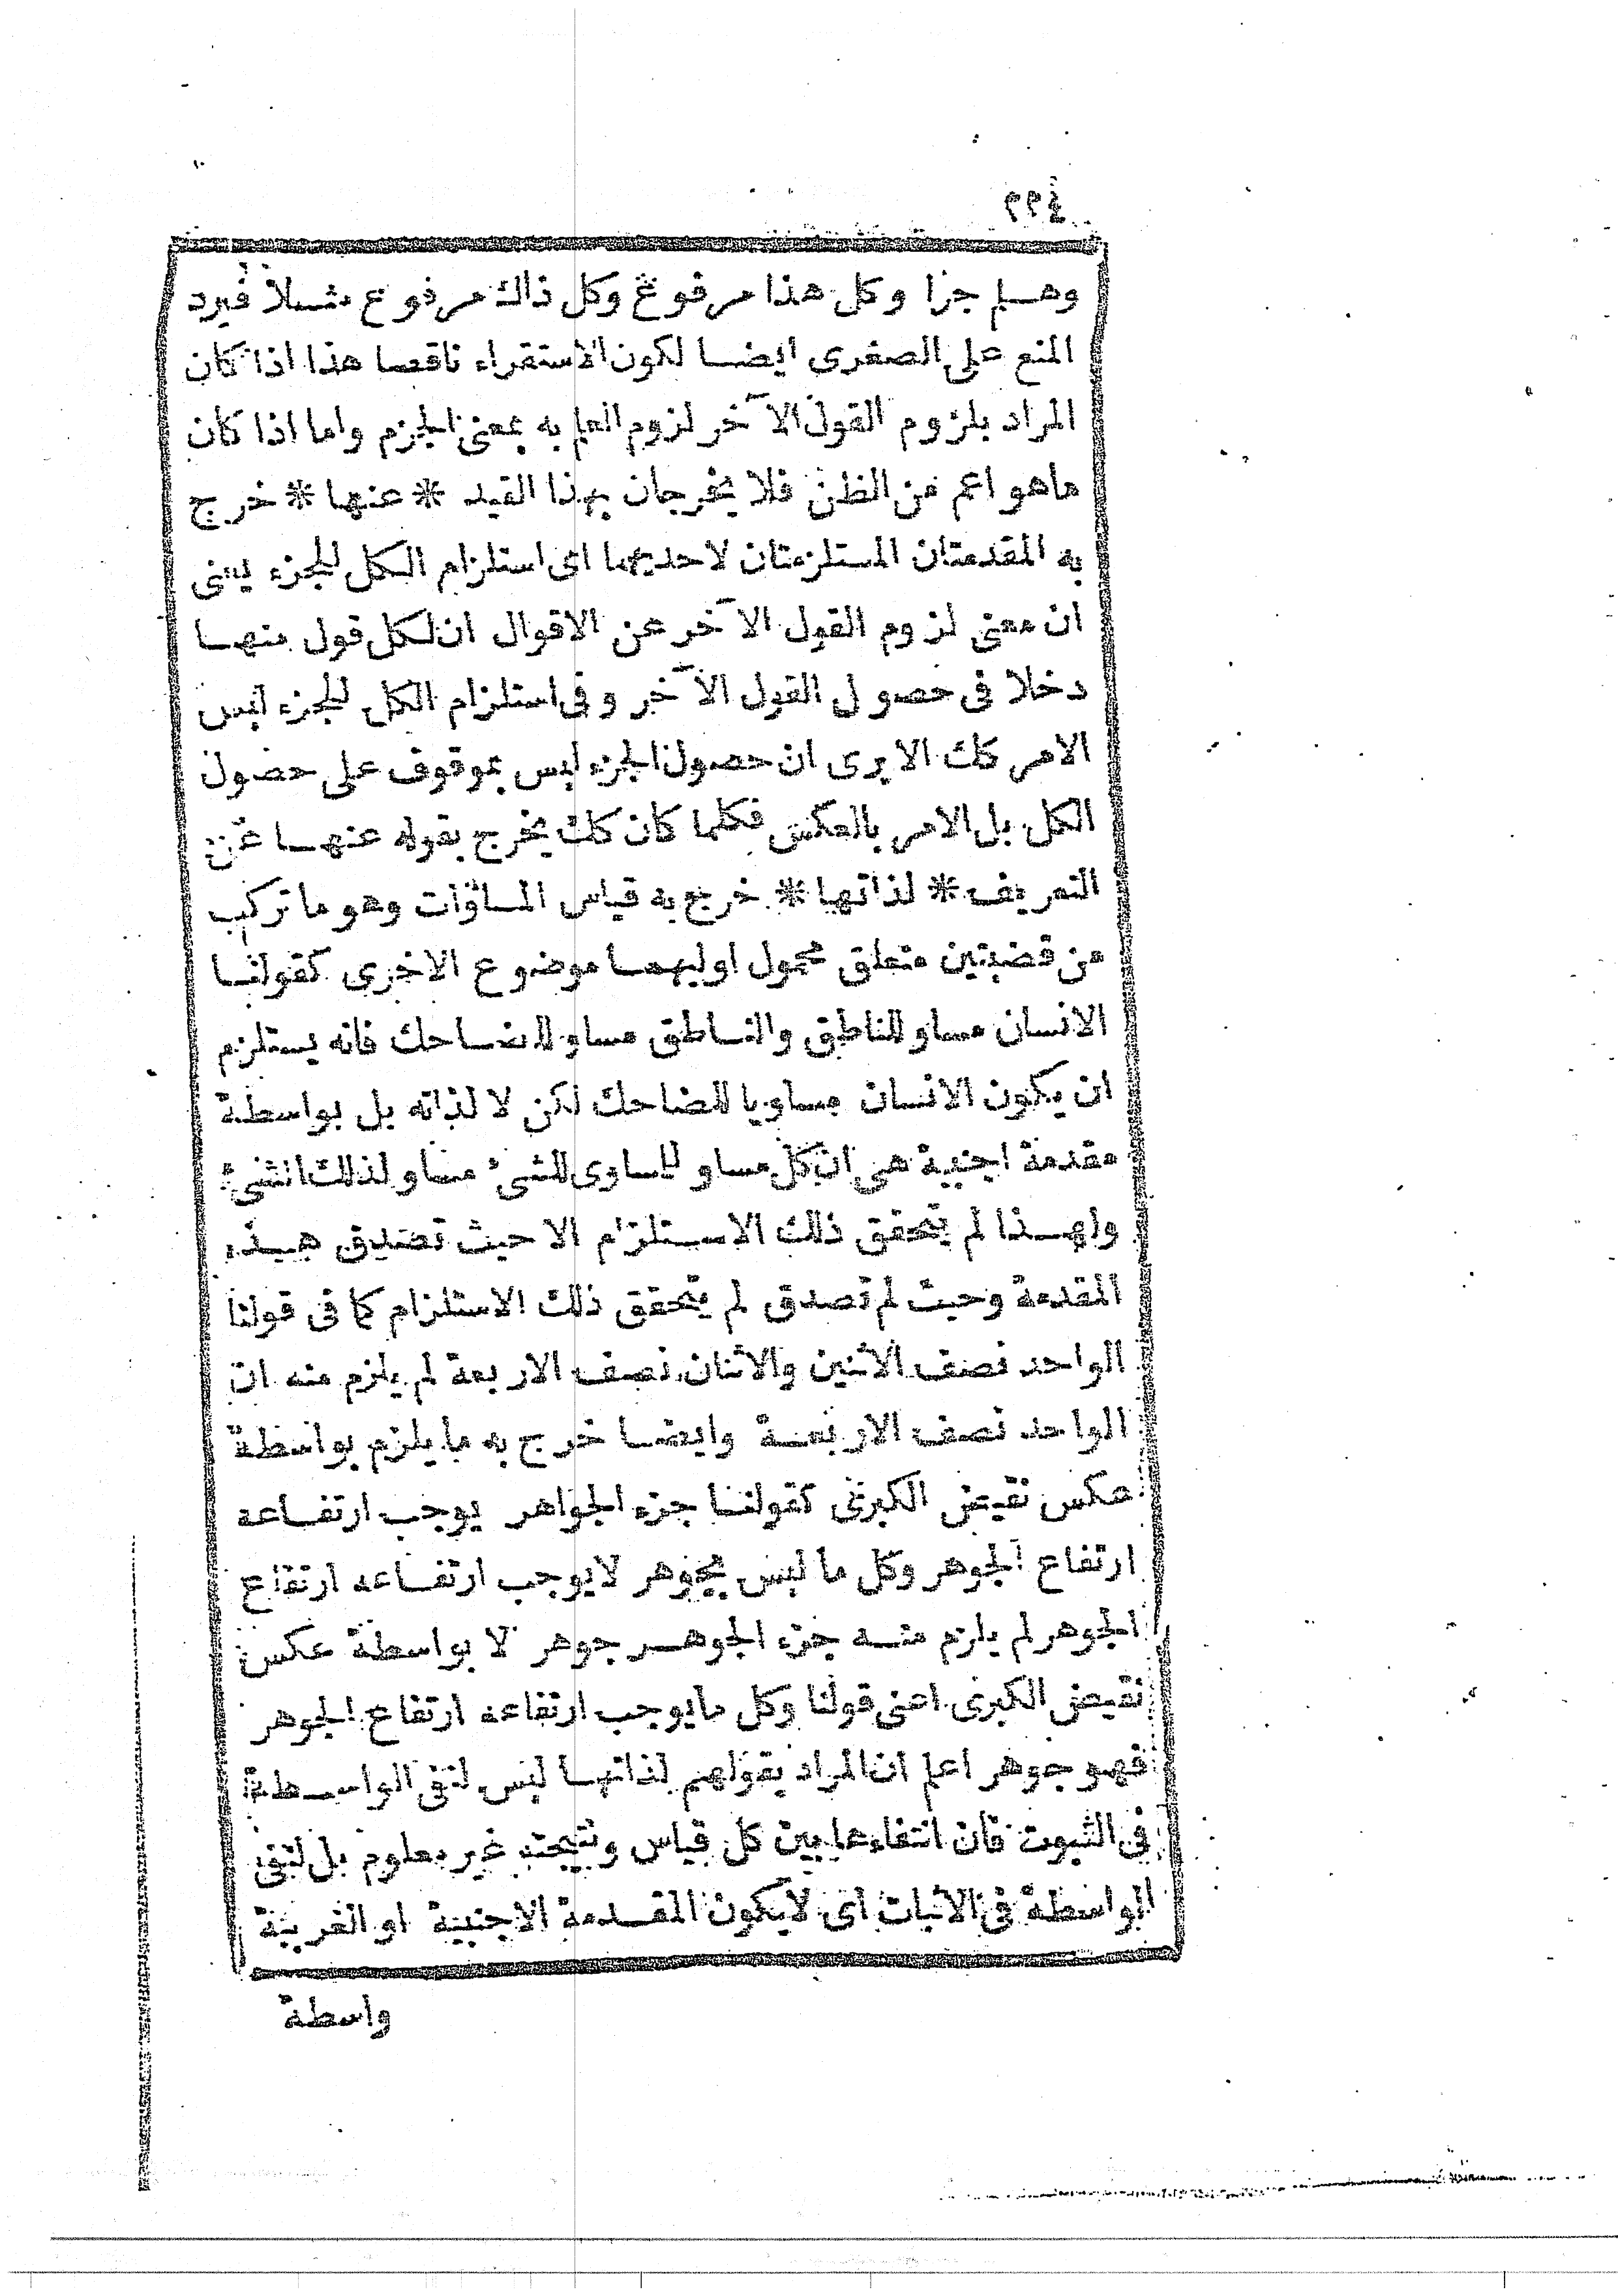 ٢٢٤
وهلم جرا وكل هذا مرفوع وكل ذاك مرفوع مثلا فيرد
المنع على الصغرى ايضا لكون الاستقراء ناقصا هذا اذا كان
المراد بلزوم القول الآخر لزوم العلم به بمعنى الجزم واما اذا كان
ماهو اعم من الظن فلا يخرجان بهذا القيد * عنها * خرج
به المقدمتان المستلزمتان لاحديهما اى استلزام الكل للجزء يعنى
ان معنى لزوم القول الآخر عن الاقوال ان لكل قول منها
دخلا فى حصول القول الآخر وفى استلزام الكل للجزء ليس
الامر كك الا يرى ان حصول الجزء ليس بموقوف على حصول
الكل بل الامر بالعكس فكلما كان كك يخرج بقوله عنها عن
التعريف * لذاتها * خرج به قياس المساوات وهو ما تركب
من قضيتين متعلق محمول اوليهما موضوع الاخرى كقولنا
الانسان مساو للناطق والناطق مساو للضاحك فانه يستلزم
ان يكون الانسان مساويا للضاحك لكن لا لذاته بل بواسطة
مقدمة اجنبية هى ان كل مساو لمساوى للشئ مساو لذلك الشئ
ولهذا لم يتحقق ذلك الاستلزام الا حيث تصديق هذه
المقدمة وحيث لم تصدق لم يتحقق ذلك الاستلزام كما فى قولنا
الواحد نصف الاثنين والاثنان نصف الاربعة لم يلزم منه ان
الواحد نصف الاربعة وايضا خرج به ما يلزم بواسطة
عكس نقيض الكبرى كقولنا جزء الجواهر يوجب ارتفاعه
ارتفاع الجوهر وكل ما ليس بجوهر لايوجب ارتفاعه ارتفاع
الجوهر لم يلزم منه جزء الجوهر جوهر لا بواسطة عكس
نقيض الكبرى اعنى قولنا وكل مايوجب ارتفاعه ارتفاع الجوهر
فهو جوهر اعلم ان المراد بقولهم لذاتها ليس لنفى الواسطة
فى الثبوت فان انتفاءها بين كل قياس ونتيجته غير معلوم بل لنفى
الواسطة فى الاثبات اى لايكون المقدمة الاجنبية او الغريبة
واسطة